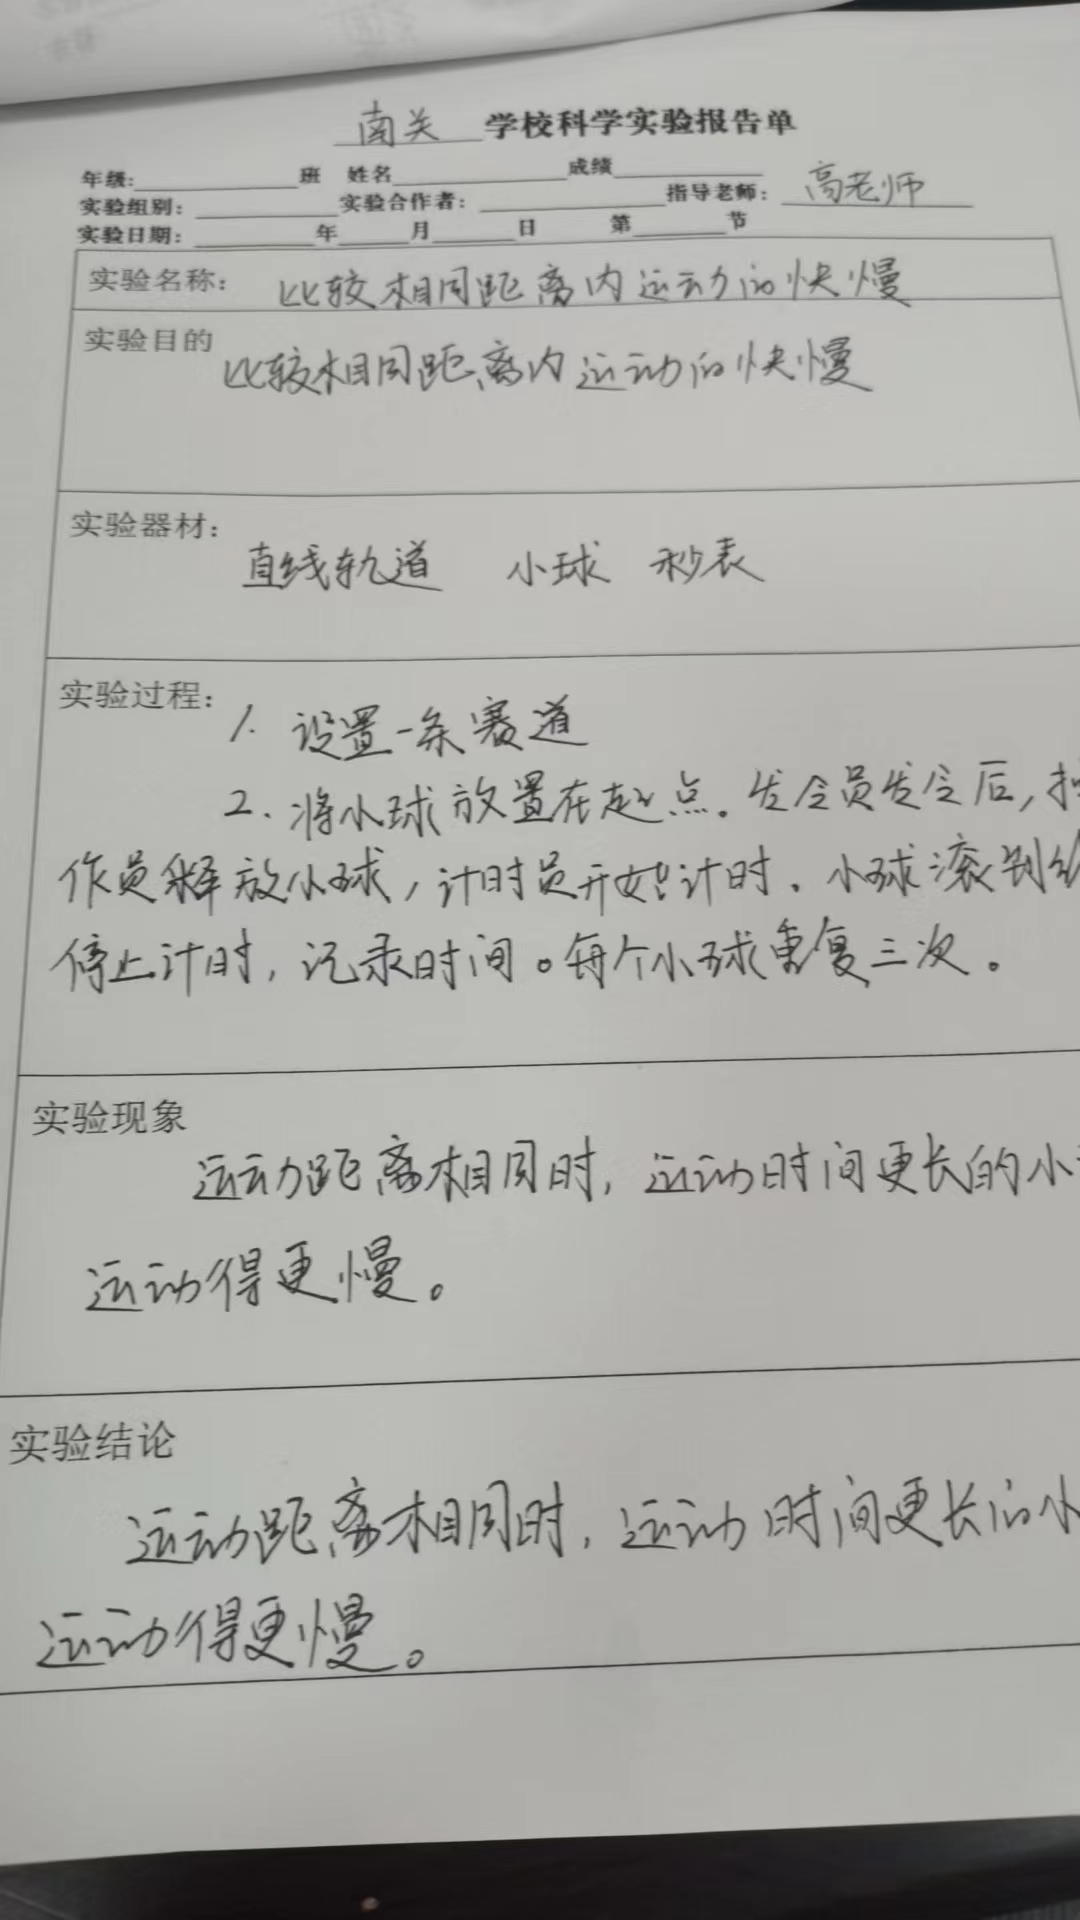 南关 学校科学实验报告单
年级: 班 姓名 成绩
实验组别: 实验合作者: 指导老师: 高老师
实验日期: 年 月 日 第 节
实验名称: 比较相同距离内运动的快慢
实验目的
比较相同距离内运动的快慢
实验器材:
直线轨道 小球 秒表
实验过程:
1. 设置一条赛道
2. 将小球放置在起点。发令员发令后,
作员释放小球,计时员开始计时。小球滚到
停止计时,记录时间。每个小球重复三次。
实验现象
运动距离相同时,运动时间更长的小
运动得更慢。
实验结论
运动距离相同时,运动时间更长的小
运动得更慢。